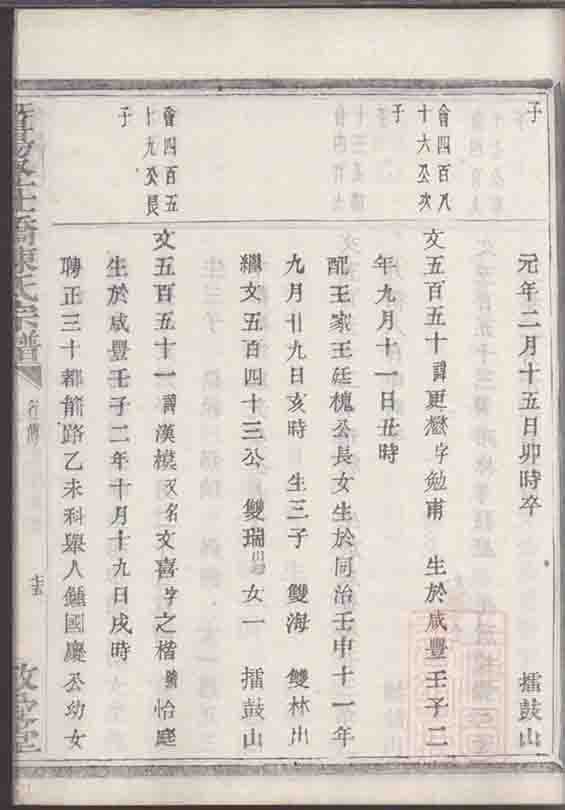 子
元年二月十五日卯時卒 擂鼓山
會四百八
十六公次
子
文五百五十諱更懋字勉甫 生於咸豐壬子二
年九月十一日丑時
配王家王廷槐公長女生於同治壬申十一年
九月廿九日亥時 生三子 雙海 雙林出
繼文五百四十三公 雙瑞 女一 擂鼓山
會四百五
十九公長
子
文五百五十一諱漢模又名文喜字之楷號怡庭
生於咸豐壬子二年十月十九日戌時
聘正三十都前路乙未科舉人鍾國慶公幼女
橋陳氏宗譜
行傳